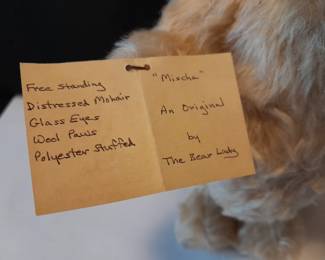 Free Standing
Distressed Mohair
Glass Eyes
Wool Paws
Polyester Stuffed
"Mischa"
An Original
by
The Bear Lady